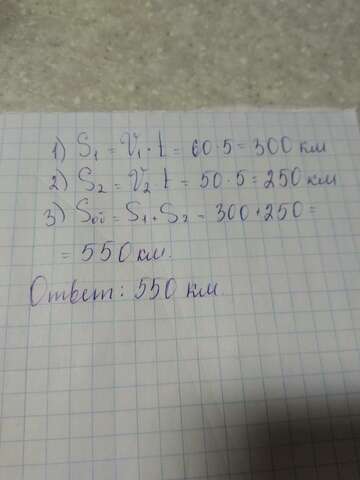 1) S₁ = V₁ · t = 60 · 5 = 300 км
2) S₂ = V₂ · t = 50 · 5 = 250 км
3) Sоб = S₁ + S₂ = 300 + 250 =
= 550 км.
Ответ: 550 км